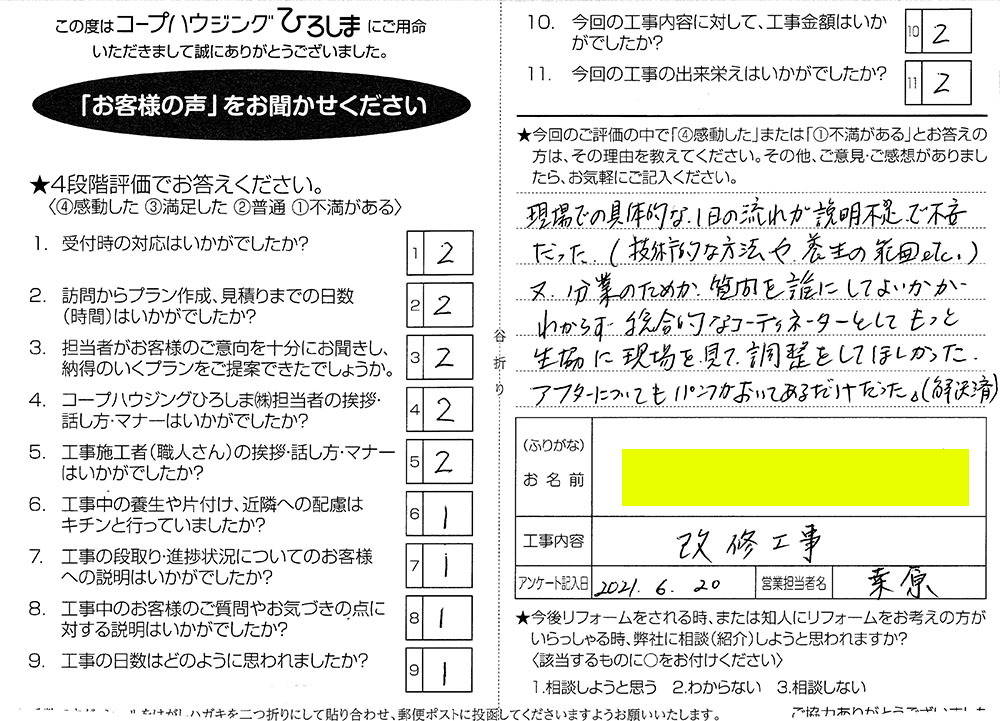 この度はコープハウジングひろしまにご用命
いただきまして誠にありがとうございました。
「お客様の声」をお聞かせください
★4段階評価でお答えください。
〈④感動した ③満足した ②普通 ①不満がある〉
1. 受付時の対応はいかがでしたか?
1 2
2. 訪問からプラン作成、見積りまでの日数
（時間）はいかがでしたか?
2 2
3. 担当者がお客様のご意向を十分にお聞きし、
納得のいくプランをご提案できたでしょうか。
3 2
4. コープハウジングひろしま㈱担当者の挨拶・
話し方・マナーはいかがでしたか?
4 2
5. 工事施工者（職人さん）の挨拶・話し方・マナー
はいかがでしたか?
5 2
6. 工事中の養生や片付け、近隣への配慮は
キチンと行っていましたか?
6 1
7. 工事の段取り・進捗状況についてのお客様
への説明はいかがでしたか?
7 1
8. 工事中のお客様のご質問やお気づきの点に
対する説明はいかがでしたか?
8 1
9. 工事の日数はどのように思われましたか?
9 1
谷折り
10. 今回の工事内容に対して、工事金額はいか
がでしたか?
10 2
11. 今回の工事の出来栄えはいかがでしたか?
11 2
★今回のご評価の中で「④感動した」または「①不満がある」とお答えの
方は、その理由を教えてください。その他、ご意見・ご感想がありまし
たら、お気軽にご記入ください。
現場での具体的な、1日の流れが説明不足で不安
だった.(技術的な方法や養生の範囲etc.)
又、分業のためか、質問を誰にしてよいかが
わからず 総合的なコーディネーターとしてもっと
生協に現場を見て、調整をしてほしかった.
アフターについてもパンフがおいてあるだけだった。(解決済)
（ふりがな）
お名前
工事内容 改修工事
アンケート記入日 2021. 6. 20 営業担当者名 桒原
★今後リフォームをされる時、または知人にリフォームをお考えの方が
いらっしゃる時、弊社に相談（紹介）しようと思われますか?
〈該当するものに○をお付けください〉
1.相談しようと思う 2.わからない 3.相談しない
をはがしハガキを二つ折りにして貼り合わせ、郵便ポストに投函してくださいますようお願いいたします。
ご協力ありがとうございました